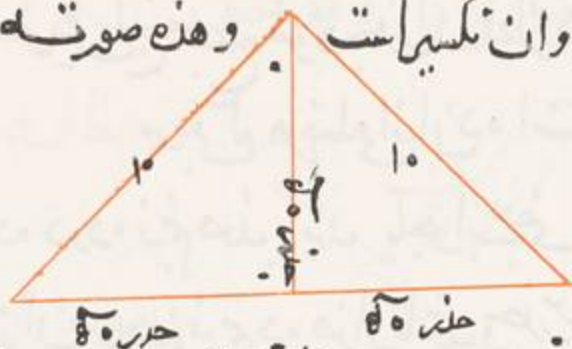 وان تكسيراست وهذه صورته
١٠ ١٠
جذر ٥٠
جذر ٥٠ جذر ٥٠